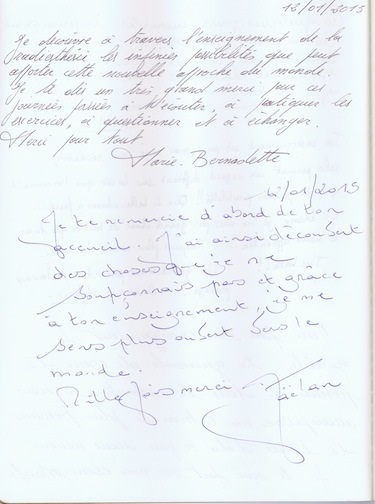 18/01/2015
Je découvre à travers l'enseignement de la
radiesthésie les infinies possibilités que peut
apporter cette nouvelle approche du monde.
Je te dis un très grand merci pour ces
journées passées à t'écouter, à pratiquer les
exercices, à questionner et à échanger.
Merci pour tout
Marie-Bernadette
18/01/2015
Je te remercie d'abord de ton
accueil. J'ai ainsi découvert
des choses que je ne
soupçonnais pas et grâce
à ton enseignement, je me
sens plus ouvert vers le
monde.
Mille fois merci